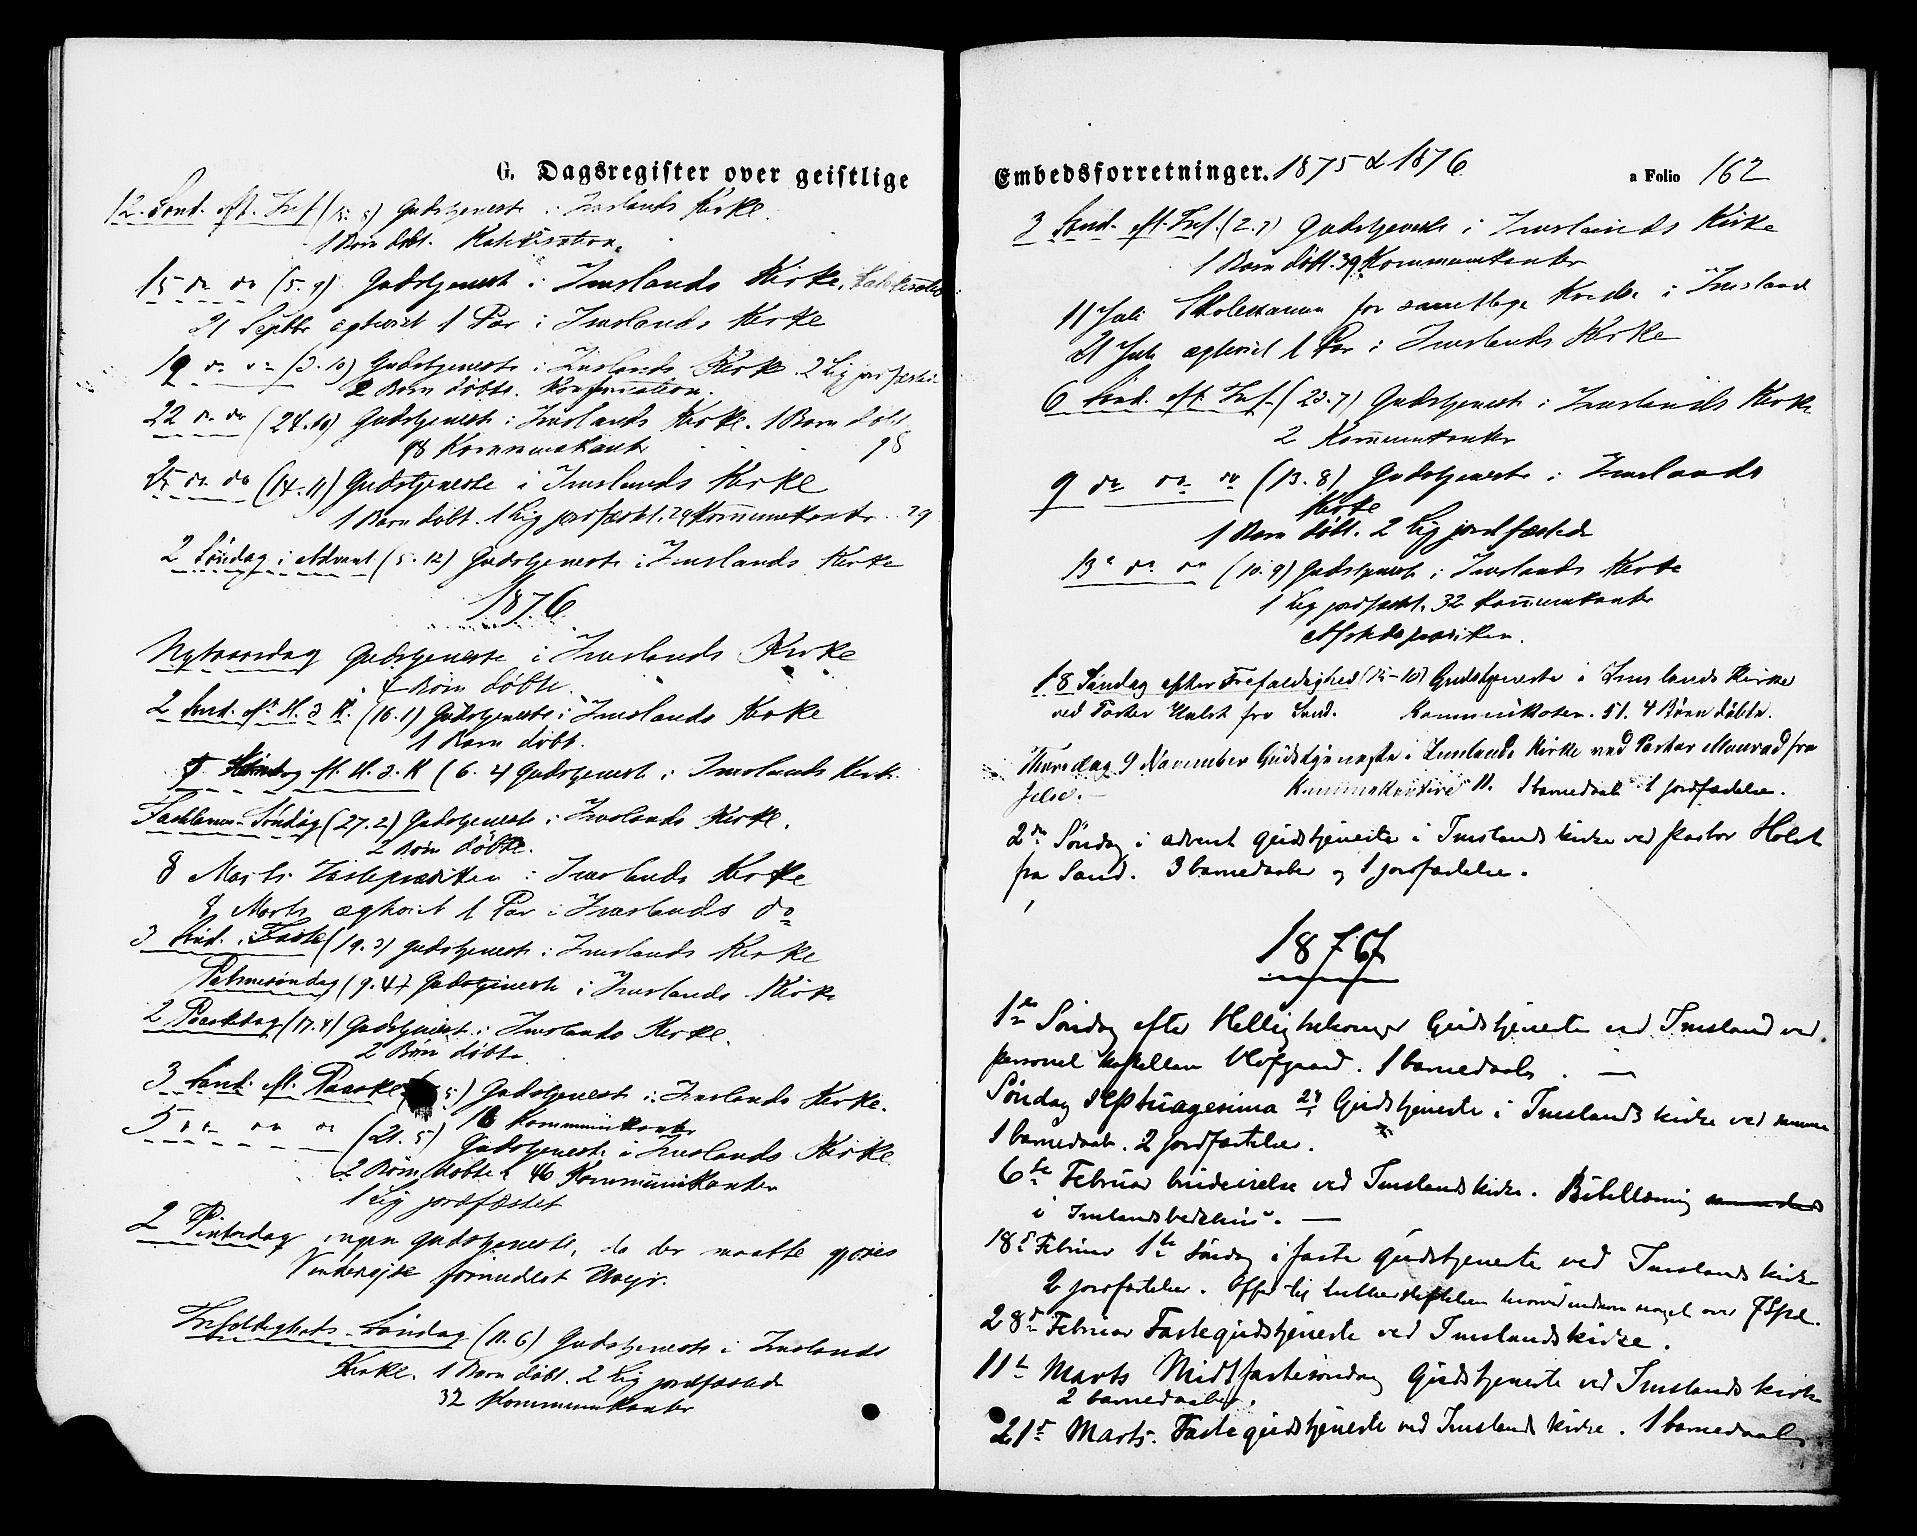 G. Dagsregister over geistlige
12. Sønd. eft. Tref. (15. 8) Gudstjeneste i Imslands Kirke.
1 Barn døbt. Katekisation.
15 do do (5. 9) Gudstjenest i Imslands Kirke. Katekisation
21 Septbr ægteviet 1 Par i Imslands Kirke
19 do do (3. 10) Gudstjeneste i Imslands Kirke 2 Lig jordfæstede
2 Børn døbte. Konfirmation.
22 do do (24. 10) Gudstjenest i Imslands Kirke. 1 Barn døbt
98 Kommunikanter 98
25 do do (14. 11) Gudstjeneste i Imslands Kirke
1 Barn døbt. 1 Lig jordfæstet. 29 Kommunikanter 29
2 Søndag i Advent (5. 12) Gudstjeneste i Imslands Kirke
1876
Nytaarsdag Gudstjeneste i Imslands Kirke
4 Børn døbte.
2 Sønd. eft. H. 3 K. (16. 1) Gudstjeneste i Imslands Kirke
1 Barn døbt.
5 Søndag eft. H. 3. K (6. 2) Gudstjenest i Imslands Kirke
Fastelavns-Søndag (27. 2) Gudstjeneste i Imslands Kirke.
2 Børn døbte.
8 Marts. Fasteprædiken i Imslands Kirke
8 Marts ægteviet 1 Par i Imslands do
3 Sønd. i Faste (19. 3) Gudstjeneste i Imslands Kirke
Palmesøndag (9. 4) Gudstjeneste i Imslands Kirke
2 Paaskedag (17. 4) Gudstjenest i Imslands Kirke.
2 Børn døbte
3 Sønd. eft. Paaske 5) Gudstjenest i Imslands Kirke.
18 Kommunikanter
5 do do do (21. 5) Gudstjeneste i Imslands Kirke
2 Børn døbte 46 Kommunikanter
1 Lig jordfæstet
2 Pintsedag ingen Gudstjeneste, da der maatte gjøres
Venderejse formedelst Uvejr.
Trefoldigheds-Søndag (11. 6) Gudstjeneste i Imslands
Kirke. 1 Barn døbt. 2 Lig jordfæstede
32 Kommunikanter
Embedsforretninger. 1875 & 1876
a Folio 162
3 Sønd. eft. Tref. (2. 7) Gudstjeneste i Imslands Kirke
1 Barn døbt. 39 Kommunikanter
11 Juli Skoleexamen for samtlige Kredse i Imsland
21 Juli ægteviet 1 Par i Imslands Kirke
6 Sønd. eft. Tref. (23. 7) Gudstjenest i Imslands Kirke
2 Kommunikanter
9 do do do (13. 8) Gudstjeneste i Imslands
Kirke
1 Barn døbt. 2 Lig jordfæstede
13 do do (10. 9) Gudstjenest i Imslands Kirke
1 Lig jordfæstet. 32 Kommunikanter
Afskedsprædiken.
18 Søndag efter Trefoldighed (15-10) Gudstjeneste i Imslands Kirke
ved Pastor Holst fra Sand. Kommunikanter. 51. 4 Børn døbte.
Thorsdag 9 November Gudstjeneste i Imslands Kirke ved Pastor Monrad fra
Jelse. Kommunikantere 11. 1 barnedaab 1 jordfæstelse.
2den Søndag i advent Gudstjeneste i Imslands kirke ved pastor Holst
fra Sand. 3 barnedaaber og 1 jordfæstelse.
1877
1ste Søndag efter Helligtrekonger Gudstjeneste ved Imsland ved
personel kapellan Hofgaard. 1 barnedaab.
Søndag septuagesima Gudstjeneste i Imslands kirke ved samme
1 barnedaab. 2 jordfæstelser.
6te Februar brudevielse ved Imslands kirke. Bibellæsning
i Imslands bedehus.
18de Februar 1ste Søndag i faste Gudstjeneste ved Imslands kirke
2 jordfæstelser. Offer til Lutherstiftelsen hvorved indkom noget over 7 Spd.
28de Februar Fastegudstjeneste ved Imslands kirke.
11te Marts Midfastesøndag Gudstjeneste ved Imslands kirke
2 barnedaaber.
21de Marts. Fastegudstjeneste ved Imslands kirke. 1 barnedaab